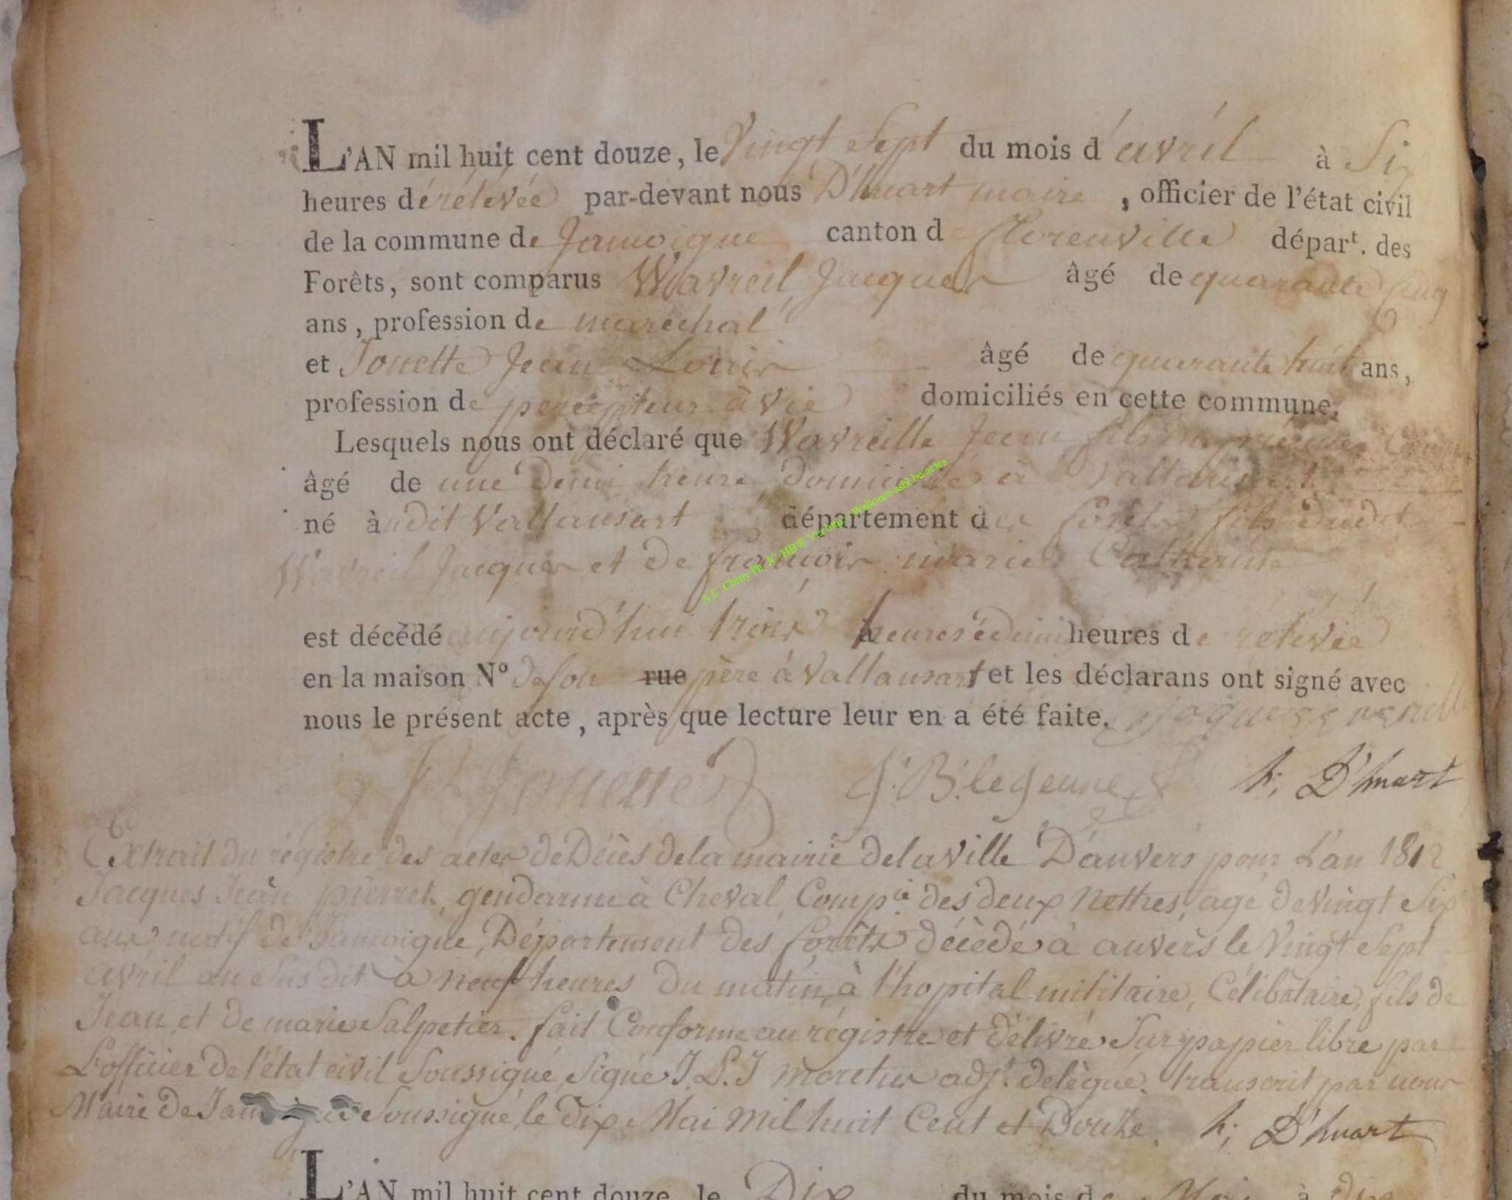 L'AN mil huit cent douze, le Vingt Sept du mois d'avril à Six
heures de rélévée par-devant nous D'huart maire, officier de l'état civil
de la commune de Jamoigne canton de florenville départ. des
Forêts, sont comparus Wavreil Jacques âgé de quarante cinq
ans, profession de maréchal
et Jonette Jean Louis âgé de quarante huit ans,
profession de percepteur à vie domiciliés en cette commune.
Lesquels nous ont déclaré que Wavreille Jean fils
âgé de une demi heure domicilié à Vallansart
né à udit Vallansart département des forêts fils dudit
Wavreil Jacques et de françois marie Catherine
est décédé aujourd'hui trois heures é demi heures de rélévée
en la maison N° de son rue père à Vallansart et les déclarans ont signé avec
nous le présent acte, après que lecture leur en a été faite. Jaques
J L Jonette J. B. le Jeune h; D'huart
Extrait du régistre des actes de Décès de la mairie de la ville D'anvers pour L'an 1812
Jacques Jean pierret, gendarme à Cheval, Comp.ie des deux Nethes, agé de Vingt Six
ans, natif de Jamoigne, Département des forêts décédé à anvers le Vingt Sept
avril an Susdit à neuf heures du matin, à l'hopital militaire, Célibataire, fils de
Jean et de marie Salpetier. fait Conforme au régistre et délivré Sur papier libre par
L'officier de l'état civil Soussigné, Signé J. L. J moretus adj.t delégué. transcrit par nous
Maire de Jamoigne Soussigné, le Dix Mai Mil huit Cent et Douze. h; D'huart
L'AN mil huit cent douze, le Dix du mois de Mai à dix